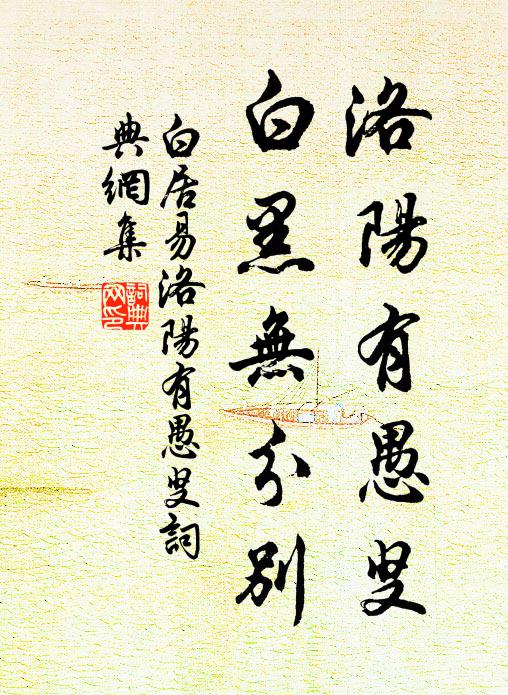 洛陽有愚叟
白黑無分別
白居易洛陽有愚叟詞
典網集
詞典
网印